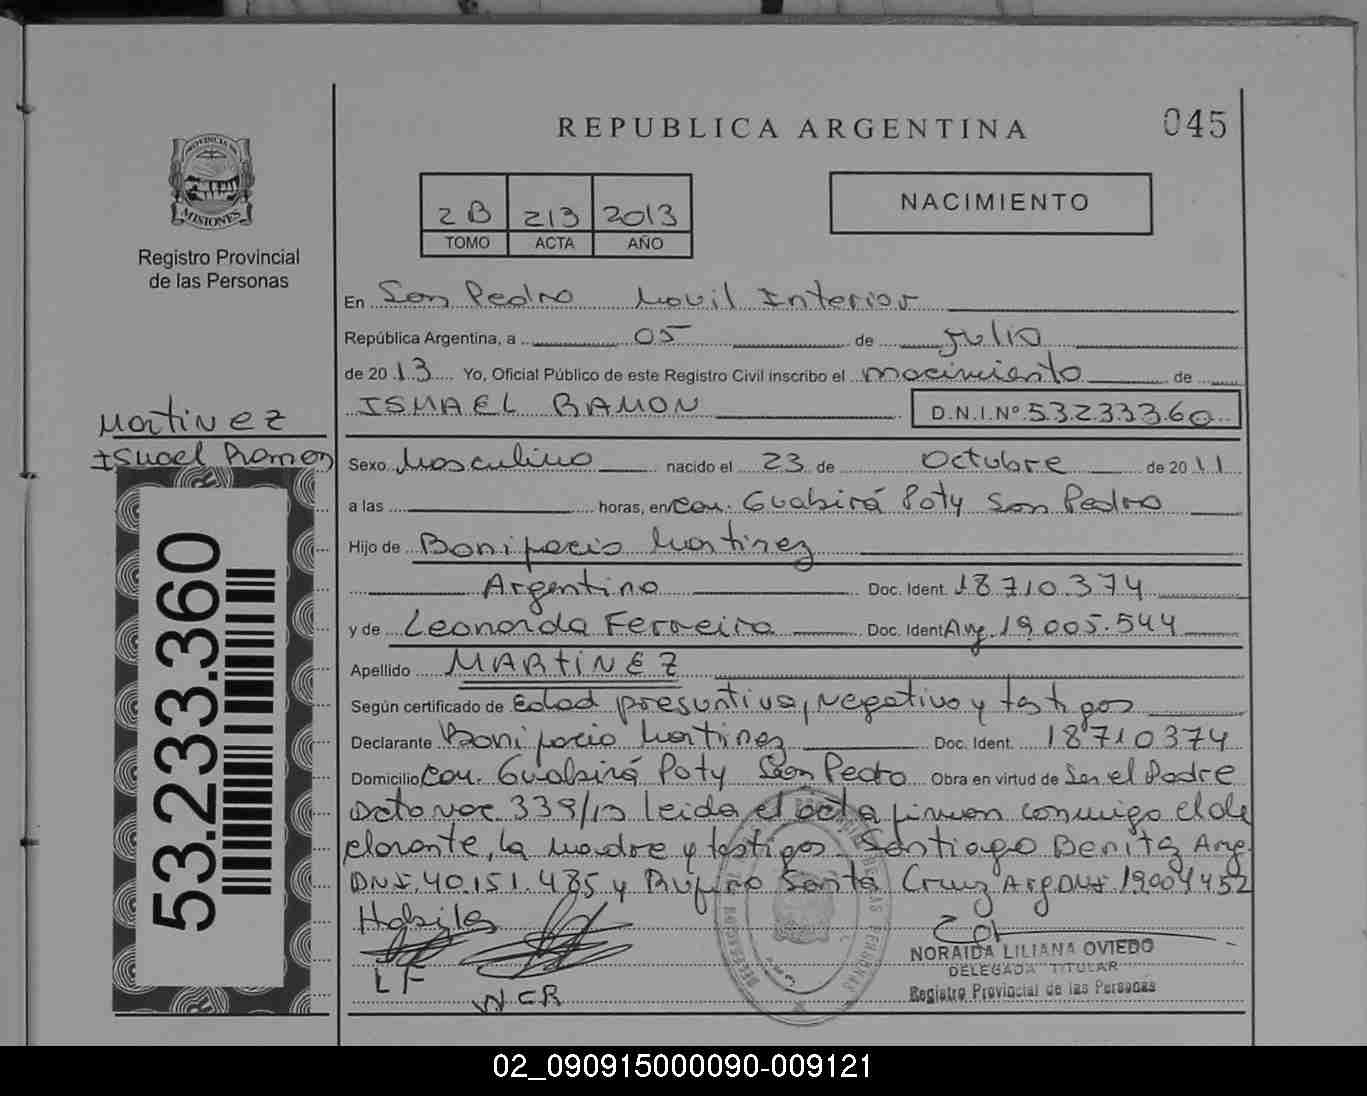 REPUBLICA ARGENTINA
045
PROVINCIA DE
MISIONES
Registro Provincial
de las Personas
2B 213 2013
TOMO ACTA AÑO
NACIMIENTO
En San Pedro Movil Interior
República Argentina, a 05 de julio
de 2013 Yo, Oficial Público de este Registro Civil inscribo el nacimiento de
ISMAEL RAMON D.N.I.Nº 53.233.360
Martinez
Ismael Ramon
53.233.360
Sexo Masculino nacido el 23 de Octubre de 2011
a las horas, en Com. Guabirá Poty San Pedro
Hijo de Bonifacio Martinez
Argentino Doc. Ident. 18.710.374
y de Leonarda Ferreira Doc. Ident Arg. 19.005.544
Apellido MARTINEZ
Según certificado de Edad presuntiva, negativo y testigos
Declarante Bonifacio Martinez Doc. Ident. 18710374
Domicilio Com. Guabirá Poty San Pedro Obra en virtud de Ser el Padre
339/13 leida el acta firman conmigo el de
clarante, la madre y testigos Santiago Benitz Arg.
DNI. 40.151.485 y Rufino Santa Cruz Arg DNI 19004452
Habiles
LF
NCR
NORAIDA LILIANA OVIEDO
DELEGADA TITULAR
Registro Provincial de las Personas
02_090915000090-009121